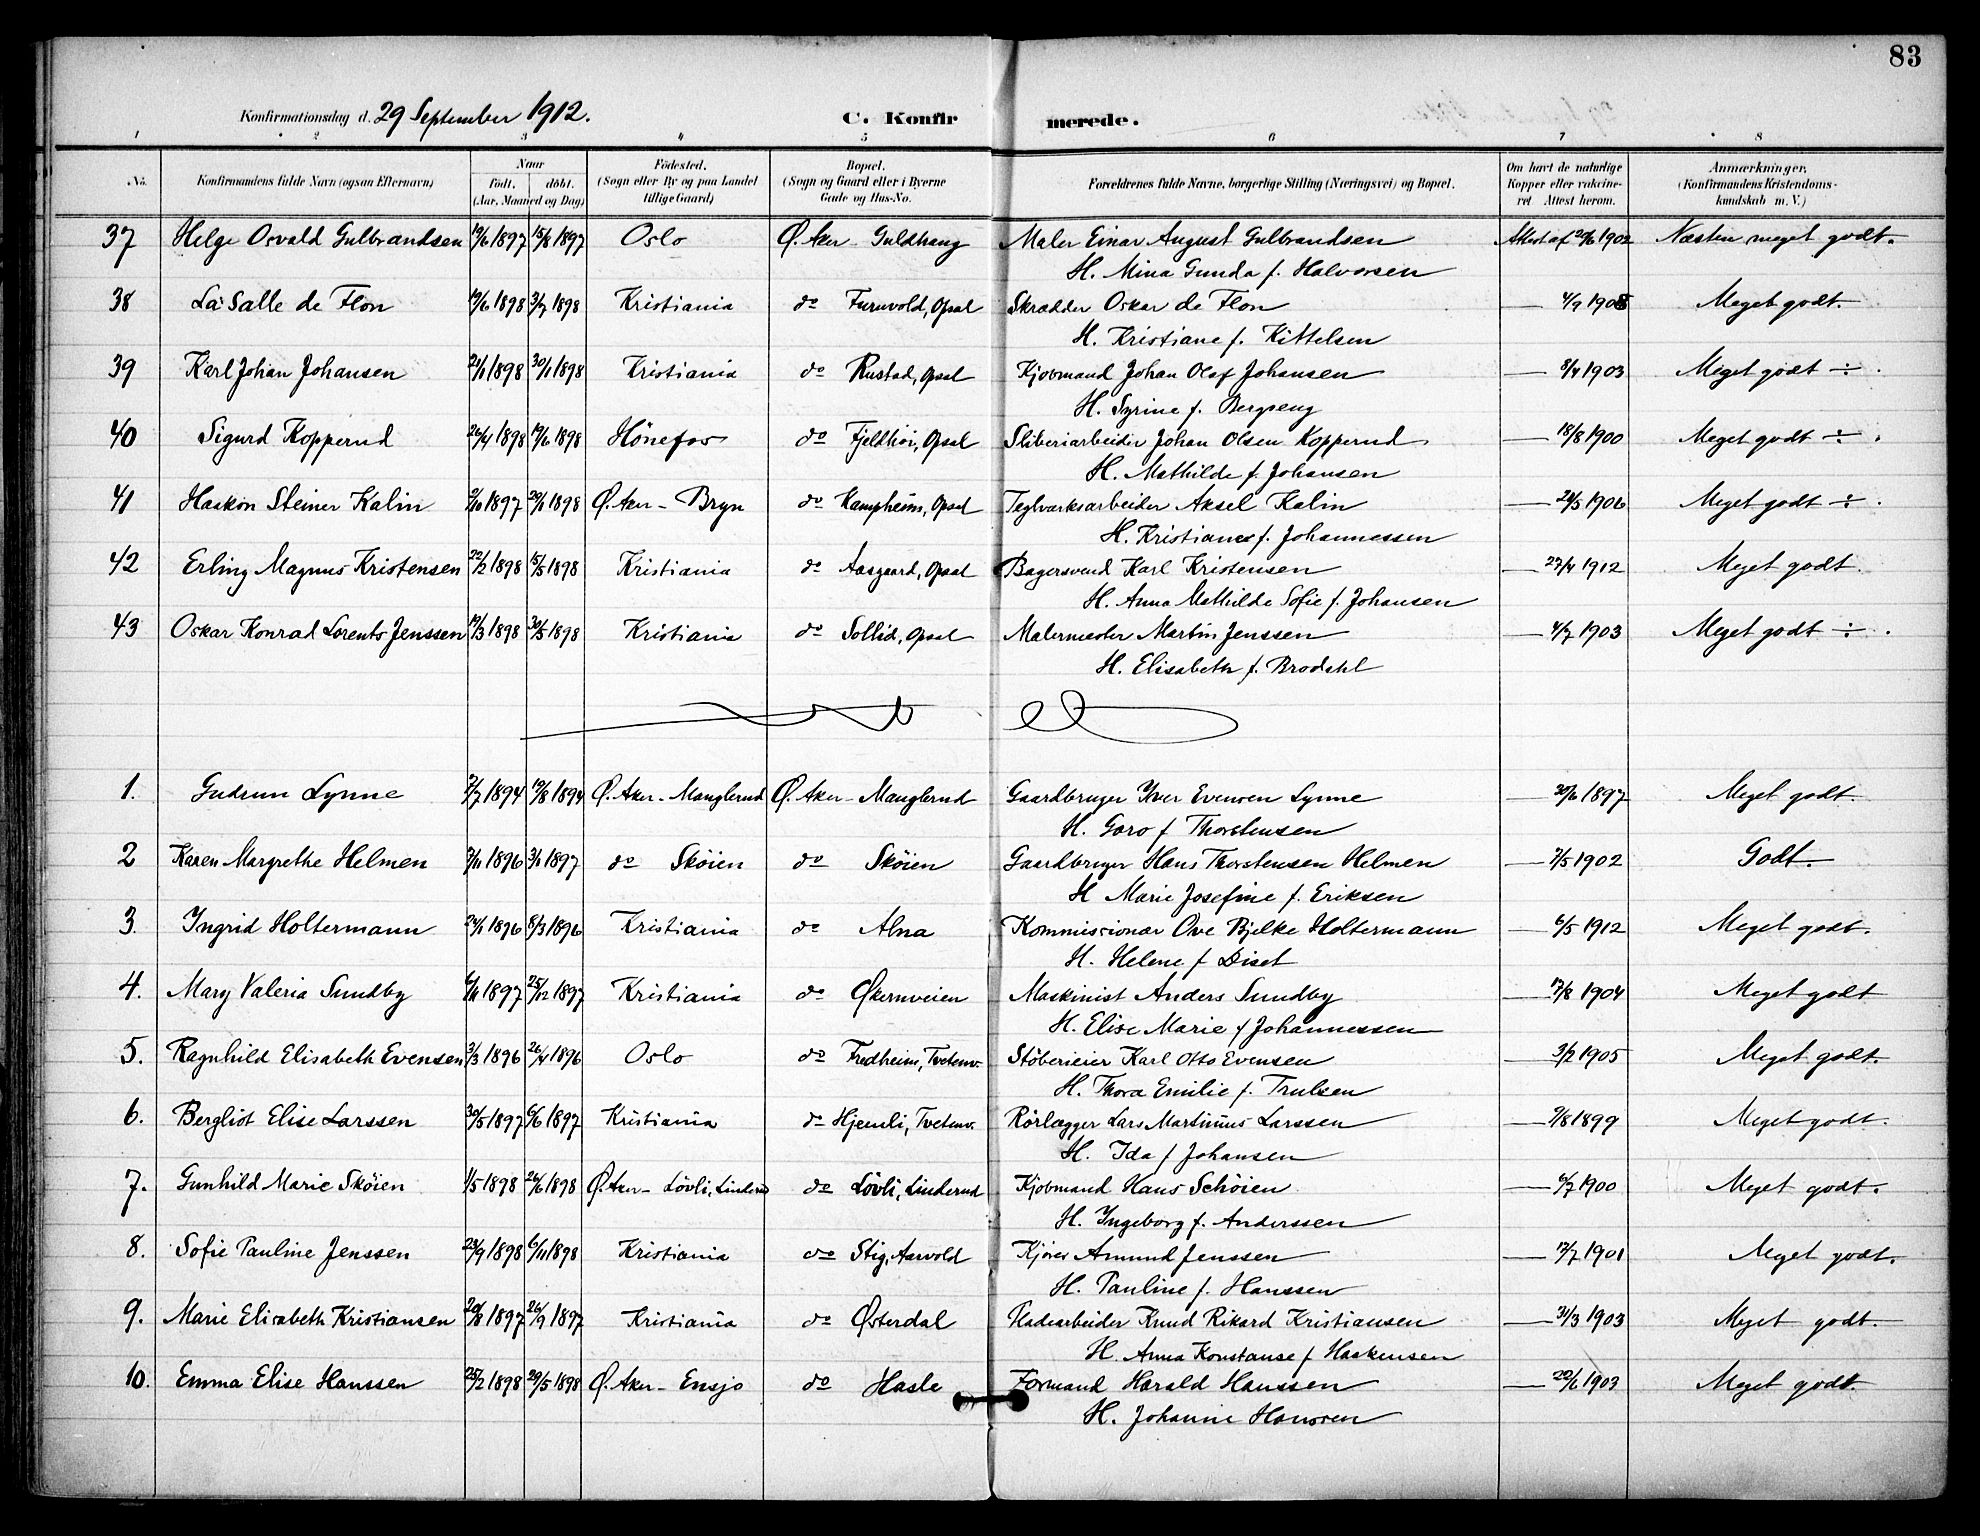 83
Konfirmationsdag d. 29 September 1912.
C. Konfirmerede.
1 2 3 4 5 6 7 8
No. Konfirmandens fulde Navn (ogsaa Efternavn) Naar født. døbt. (Aar, Maaned og Dag) Fødested. (Sogn eller By og paa Landet tillige Gaard) Bopæl. (Sogn og Gaard eller i Byerne Gade og Hus-No. Forældrenes fulde Navne, borgerlige Stilling (Næringsvei) og Bopæl. Om havt de naturlige Kopper eller vakcineret. Attest herom. Anmærkninger. (Konfirmandens Kristendomskundskab m. V.)
37 Helge Osvald Gulbrandsen 19/6 1897 15/8 1897 Oslo Ø. Aker - Guldhaug Maler Einar August Gulbrandsen Attest af 1902 Næsten meget godt.
H. Mina Gunda f. Halvorsen
38 La Salle de Flon 19/6 1898 3/7 1898 Kristiania do Furuvold, Opsal Skrædder Oskar de Flon — 4/9 1905 Meget godt.
H. Kristiane f. Kittelsen
39 Karl Johan Johansen 21/1 1898 30/1 1898 Kristiania do Rustad, Opsal Kjøbmand Johan Olaf Johansen — 8/4 1903 Meget godt ÷.
H. Syrine f. Bergseng
40 Sigurd Kopperud 26/4 1898 19/6 1898 Hönefos do Fjeldhöi, Opsal Sliberiarbeider Johan Olsen Kopperud — 18/8 1900 Meget godt ÷.
H. Mathilde f. Johansen
41 Haakon Steiner Kalin 2/10 1897 1898 Ø. Aker - Bryn do Kampheim, Opsal Teglværksarbeider Aksel Kalin — 24/5 1906 Meget godt ÷.
H. Kristiane f. Johannessen
42 Erling Magnus Kristensen 22/2 1898 15/5 1898 Kristiania do Aasgaard, Opsal Bagersvend Karl Kristensen — 27/4 1912 Meget godt.
H. Anna Mathilde Sofie f. Johansen
43 Oskar Konrad Lorents Jenssen 19/3 1898 30/5 1898 Kristiania do Sollid, Opsal Malermester Martin Jenssen — 4/7 1903 Meget godt ÷.
H. Elisabeth f. Brodahl
1. Gudrun Lynne 2/7 1894 19/8 1894 Ø. Aker - Manglerud Ø. Aker - Manglerud Gaardbruger Iver Evensen Lynne — 30/6 1897 Meget godt.
H. Goro f Thorstensen
2 Karen Margrethe Helmen 2/11 1896 3/1 1897 do Skøien do Skøien Gaardbruger Hans Thorstensen Helmen — 7/5 1902 Godt.
H Marie Josefine f. Eriksen
3. Ingrid Holtermann 24/1 1896 8/3 1896 Kristiania do Alna Kommissionær Ove Bjelke Holtermann — 6/5 1912 Meget godt.
H. Helene f Diset
4. Mary Valeria Sundby 6/11 1897 25/12 1897 Kristiania do Økernveien Maskinist Anders Sundby — 17/8 1904 Meget godt
H. Elise Marie f Johannessen
5. Ragnhild Elisabeth Evensen 3/3 1896 26/4 1896 Oslo do Fredheim, Tvetenv. Støberieier Karl Otto Evensen — 3/2 1905 Meget godt.
H. Thora Emilie f. Trulsen
6. Bergliot Elise Larssen 30/5 1897 6/6 1897 Kristiania do Hjemli, Tvetenv. Rørlægger Lars Martinius Larssen — 9/8 1899 Meget godt.
H. Ida f Johansen
7. Gunhild Marie Skøien 1/5 1898 26/6 1898 Ø. Aker - Lövli, Linderud do Lövli, Linderud Kjøbmand Hans Schøien — 6/7 1900 Meget godt.
H. Ingeborg f. Anderssen
8. Sofie Pauline Jenssen 23/9 1898 6/11 1898 Kristiania do Stig, Aarvold Kjører Amund Jenssen — 17/7 1901 Meget godt.
H. Pauline f. Hanssen
9. Marie Elisabeth Kristiansen 20/8 1897 26/9 1897 Kristiania do Østerdal Pladearbeider Knud Rikard Kristiansen — 31/3 1903 Meget godt.
H. Anna Konstanse f Haakensen
10. Emma Elise Hanssen 25/2 1898 29/5 1898 Ø. Aker - Ensjo do Hasle Formand Harald Hanssen — 20/6 1903 Meget godt.
H. Johanne Hansen